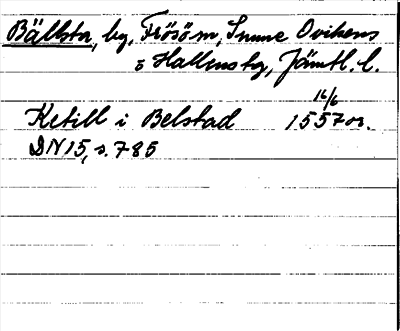 Bällsta, by, Frösö m, Sunne Ovikens
o Hallens tg, Jämtl. l.
16/6
Ketill i Belstad 1557 or.
DN 15, s. 785